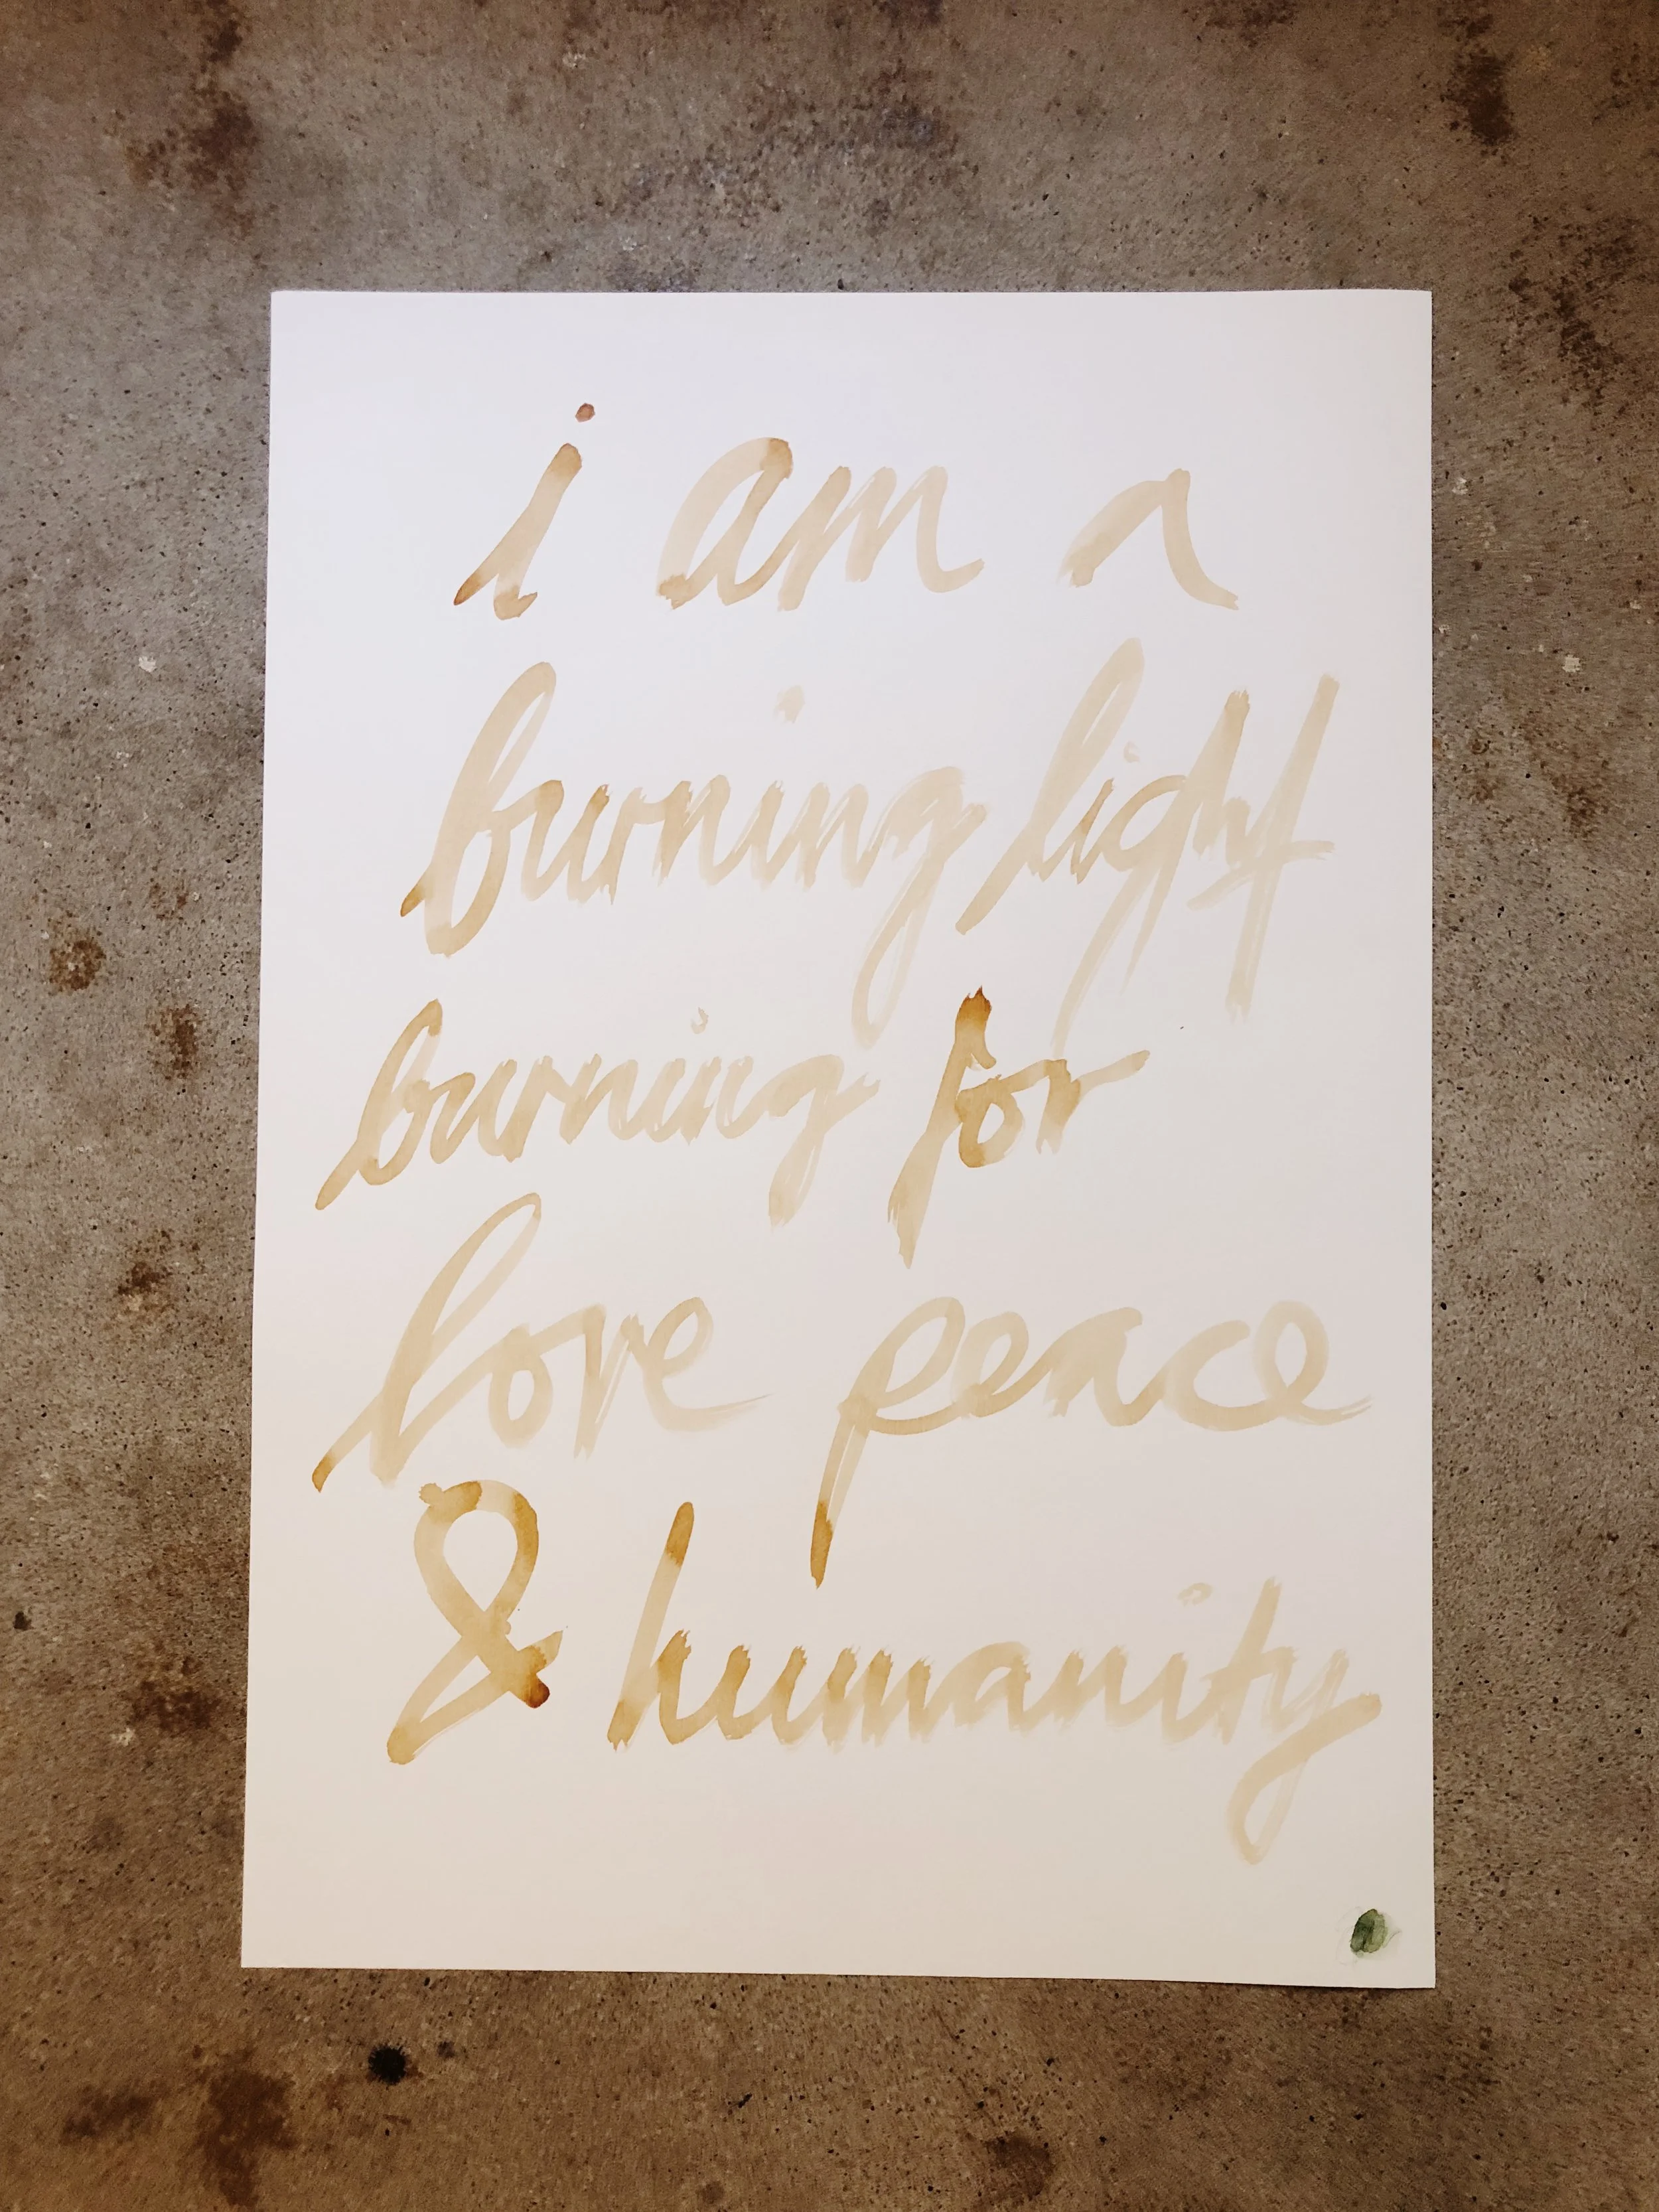 i am a
burning light
burning for
love peace
& humanity